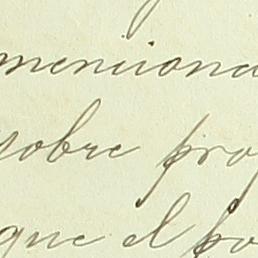 menciona
sobre pro
que el po